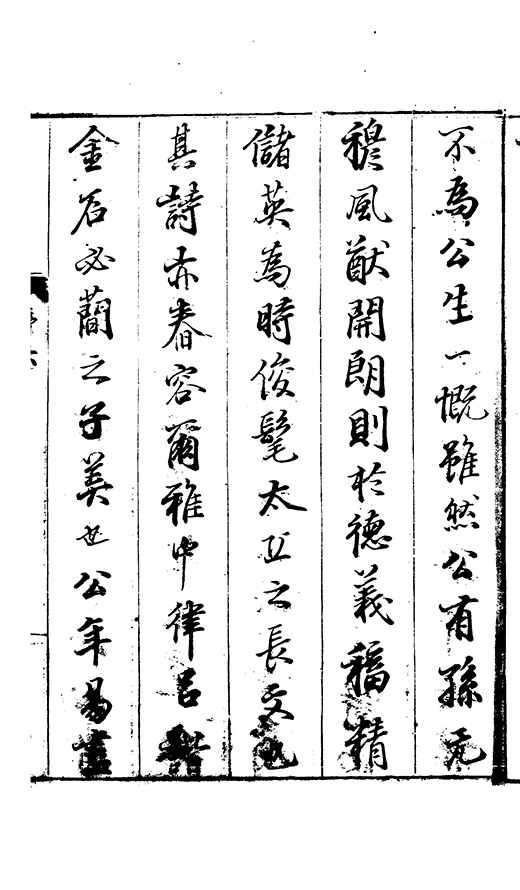 不為公生一慨雖然公有孫元
穆風猷開朗則於德義福精
儲英為時俊髦太丘之長文
其詩亦春容爾雅中律呂諧
金石必藺之子美也公年易